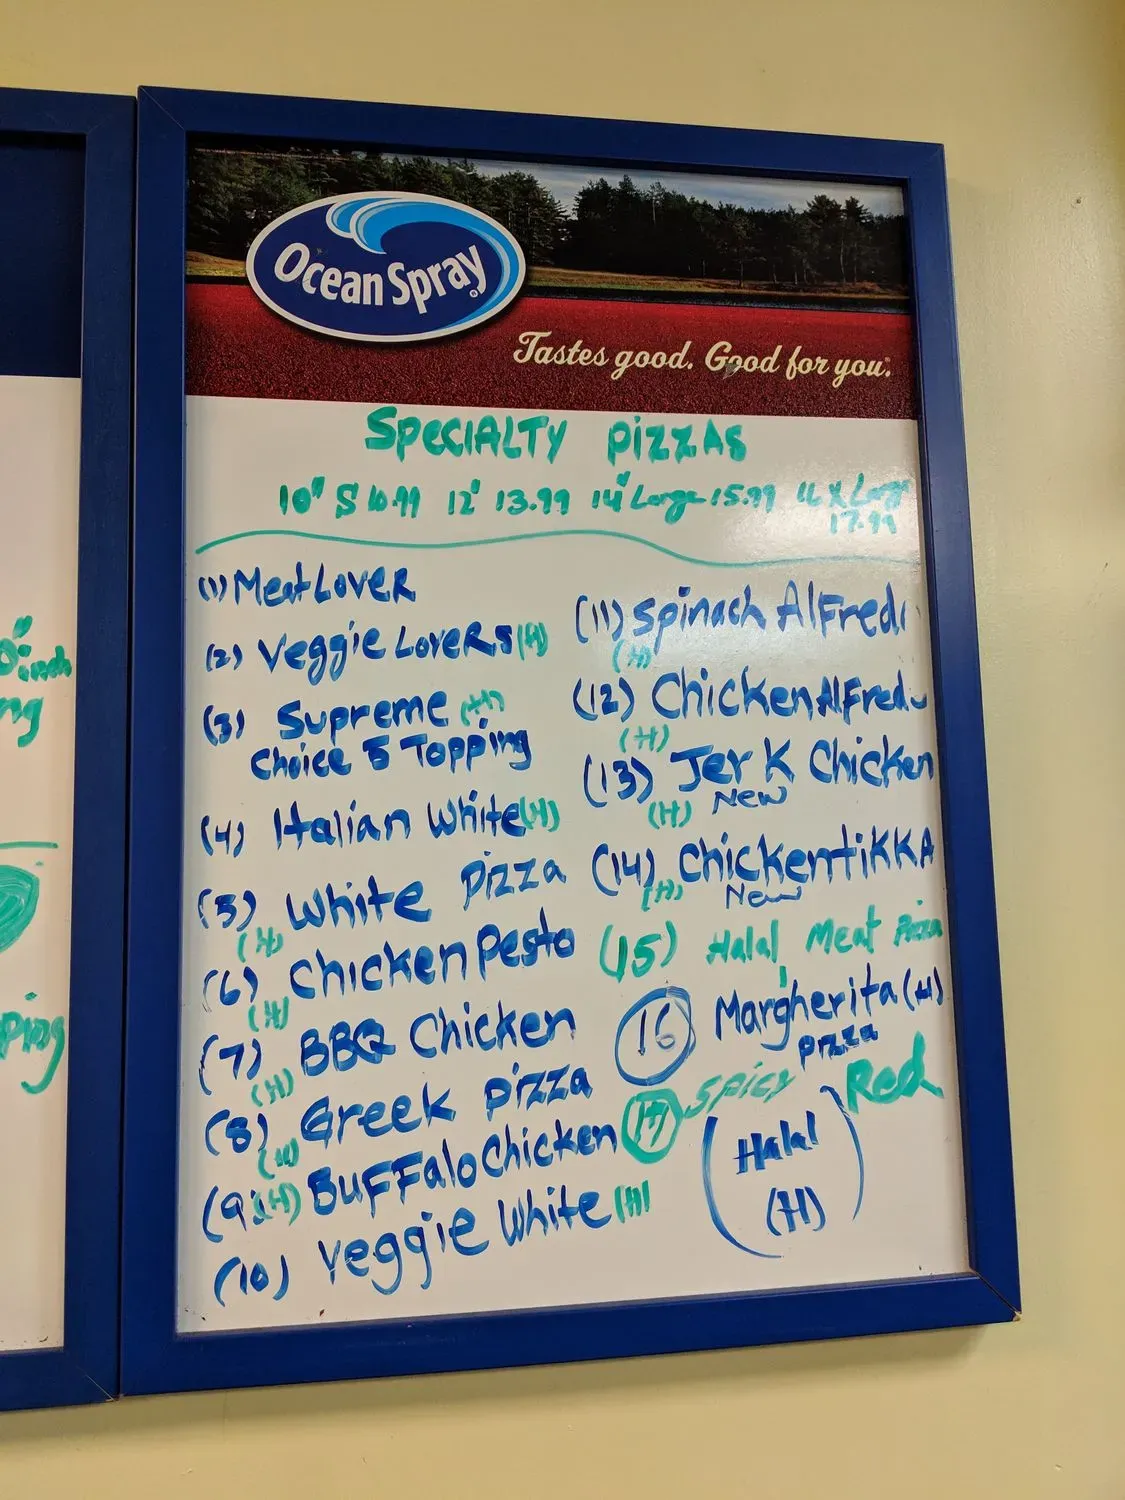 Ocean Spray®
Tastes good. Good for you.™
SPECIALTY PIZZAS
10" S 10.99 12" 13.99 14" Large 15.99 16 X Large
17.99
(1) Meat Lover
(2) Veggie Lovers (H)
(3) Supreme (H)
Choice 5 Topping
(4) Italian White (H)
(5) White Pizza
(H)
(6) Chicken Pesto
(H)
(7) BBQ Chicken
(H)
(8) Greek Pizza
(H)
(9) (H) Buffalo Chicken
(10) Veggie White (H)
(11) Spinach Alfredo
(H)
(12) Chicken Alfredo
(H)
(13) Jerk Chicken
(H) New
(14) Chicken tikka
(H) New
(15) Halal Meat Pizza
16 Margherita (H)
Pizza
17 Spicy Red
Halal
(H)
ng
ping